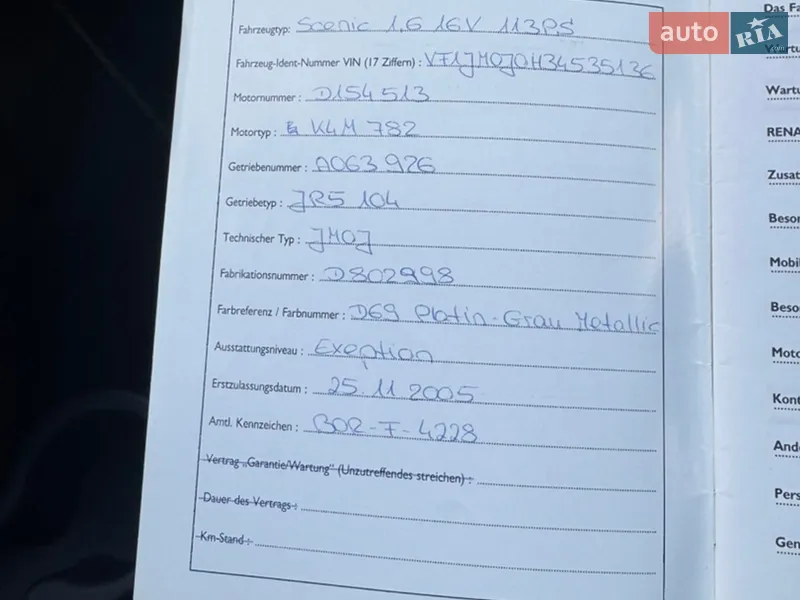 Fahrzeugtyp: Scenic 1,6 16V 113PS
Fahrzeug-Ident-Nummer VIN (17 Ziffern) : VF1JM0J0H34535136
Motornummer : D154513
Motortyp : K4M 782
Getriebenummer : A063926
Getriebetyp : JR5 104
Technischer Typ : JM0J
Fabrikationsnummer : D802998
Farbreferenz / Farbnummer : D69 Platin-Grau Metallic
Ausstattungsniveau : Exeption
Erstzulassungsdatum : 25 11 2005
Amtl. Kennzeichen : BOR-F-4228
Vertrag „Garantie/Wartung" (Unzutreffendes streichen) :
Dauer des Vertrags :
Km-Stand :
auto RIA .com
Das Fa
Wartu
Wartu
RENA
Zusat
Beson
Mobil
Beso
Moto
Kont
And
Pers
Gen